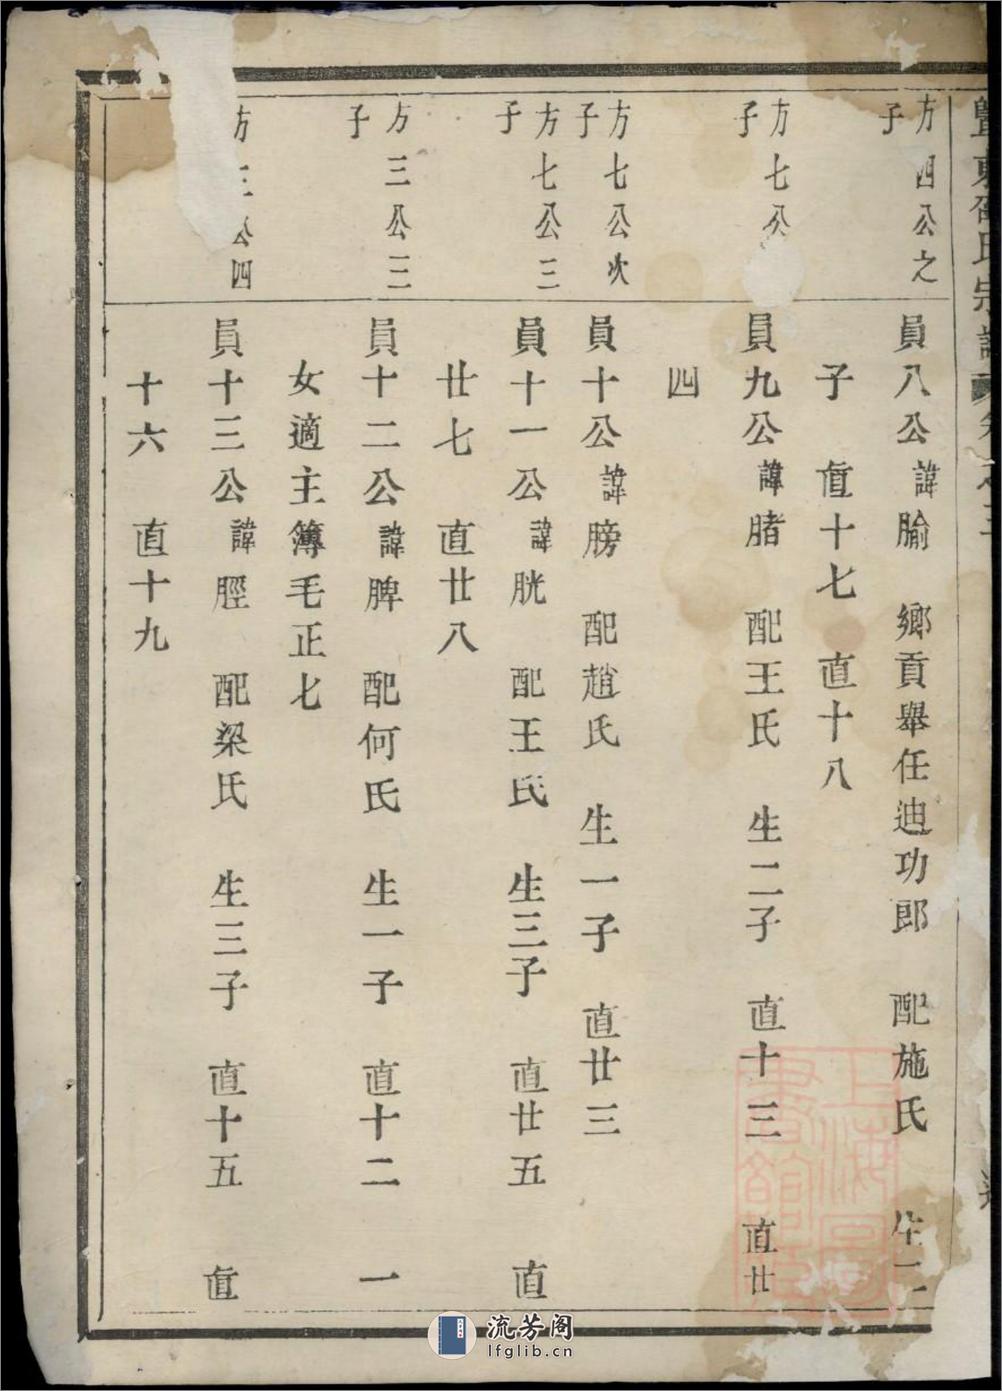 暨東邵氏宗譜 卷之三
方四公之
子
員八公諱腧 鄉貢舉任迪功郎 配施氏 生二
子 直十七 直十八
方七公
子
員九公諱䐗 配王氏 生二子 直十三 直廿
四
方七公次
子
員十公諱膀 配趙氏 生一子 直廿三
方七公三
子
員十一公諱胱 配王氏 生三子 直廿五 直
廿七 直廿八
方三公三
子
員十二公諱脾 配何氏 生一子 直十二 一
女適主簿毛正七
方三公四
員十三公諱脛 配梁氏 生三子 直十五 直
十六 直十九
流芳阁
lfglib.cn